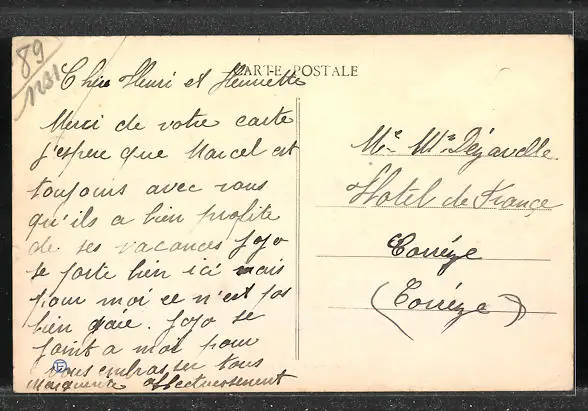 89
1231
CARTE POSTALE
Chère Henri et Henriette
Merci de votre carte
j'espère que Marcel est
toujours avec vous
qu'ils a bien profite
de ses vacances Jojo
se porte bien ici mais
pour moi ce n'est pas
bien gaie. Jojo se
joint a moi pour
vous embrasser tous
Marguerite affectueusement
Mr Mme Déjavelle
Hotel de France
Corrèze
(Corrèze)